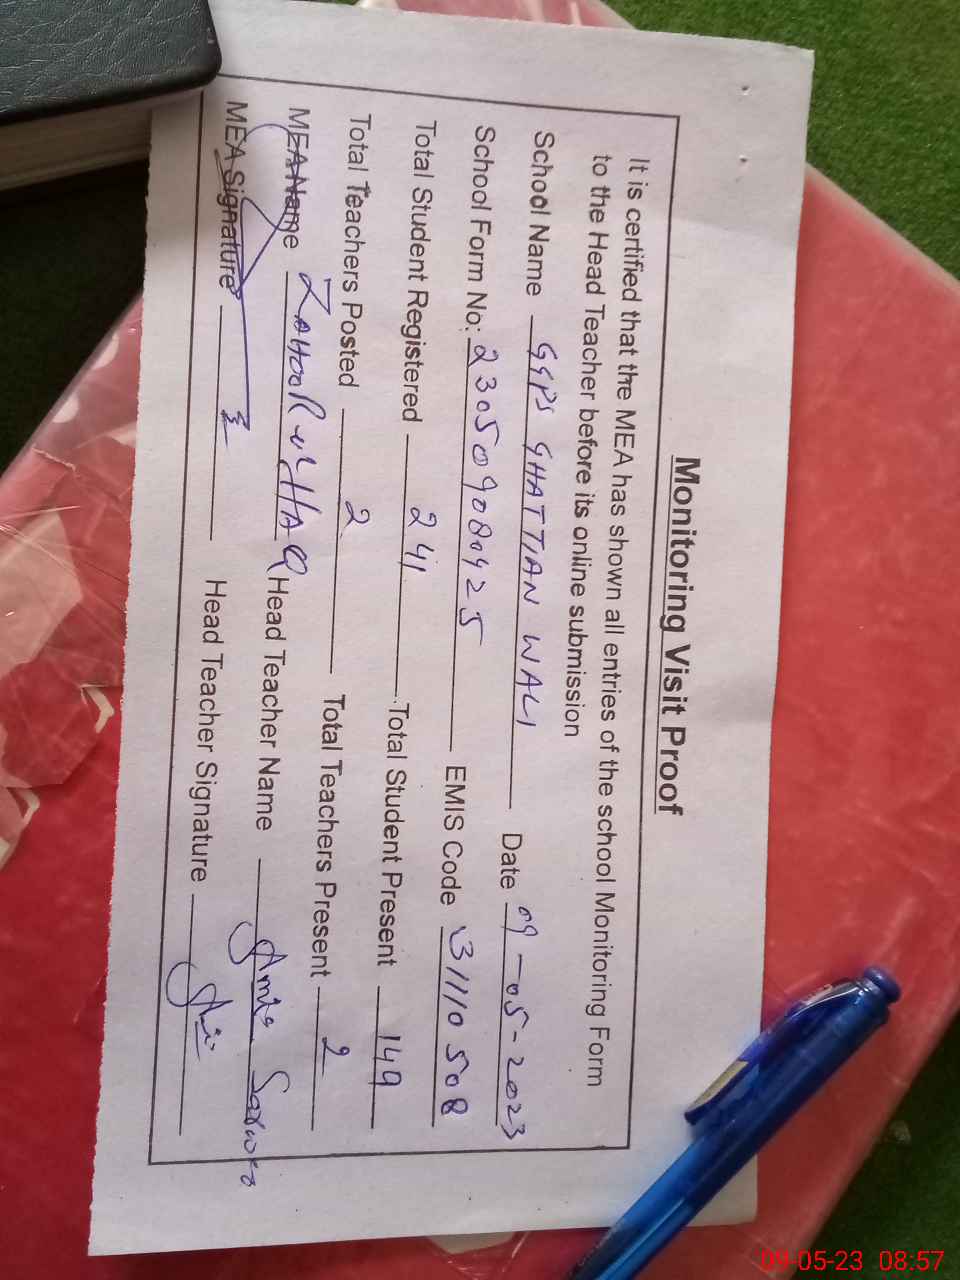 Monitoring Visit Proof
It is certified that the MEA has shown all entries of the school Monitoring Form
to the Head Teacher before its online submission
School Name GGPS GHATTIAN WALI Date 09-05-2023
School Form No: 230509080425 EMIS Code 31110508
Total Student Registered 241 Total Student Present 149
Total Teachers Posted 2 Total Teachers Present 2
MEA Name ZAHOOR ul HAQ Head Teacher Name Sarwar
MEA Signature Head Teacher Signature
09-05-23 08:57